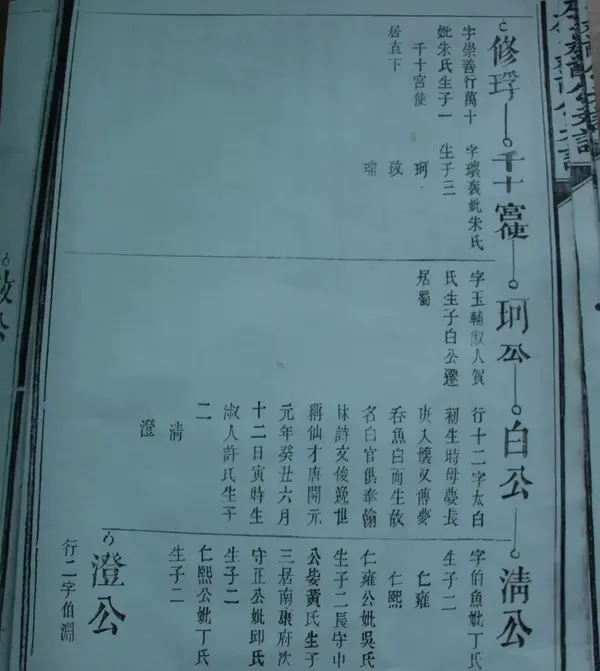 修琈
字崇善行萬十
妣朱氏生子一
千十宮使
居直下
千十宮使
字瓌褒妣朱氏
生子三
珂
玫
珂公
字玉輔淑人賀
氏生子白公遷
居蜀
白公
行十二字太白
初生時母夢長
庚入懷又傳夢
吞魚白而生故
名白官供奉翰
林詩文俊逸世
稱仙才唐開元
元年癸丑六月
十二日寅時生
淑人許氏生子
二
清
澄
清公
字伯魚妣丁氏
生子二
仁雍
仁熙
仁雍公妣吳氏
生子二長守中
公娶黃氏生子
三居南康府次
守正公妣邱氏
生子二
仁熙公妣丁氏
生子二
澄公
行二字伯淵
玫公